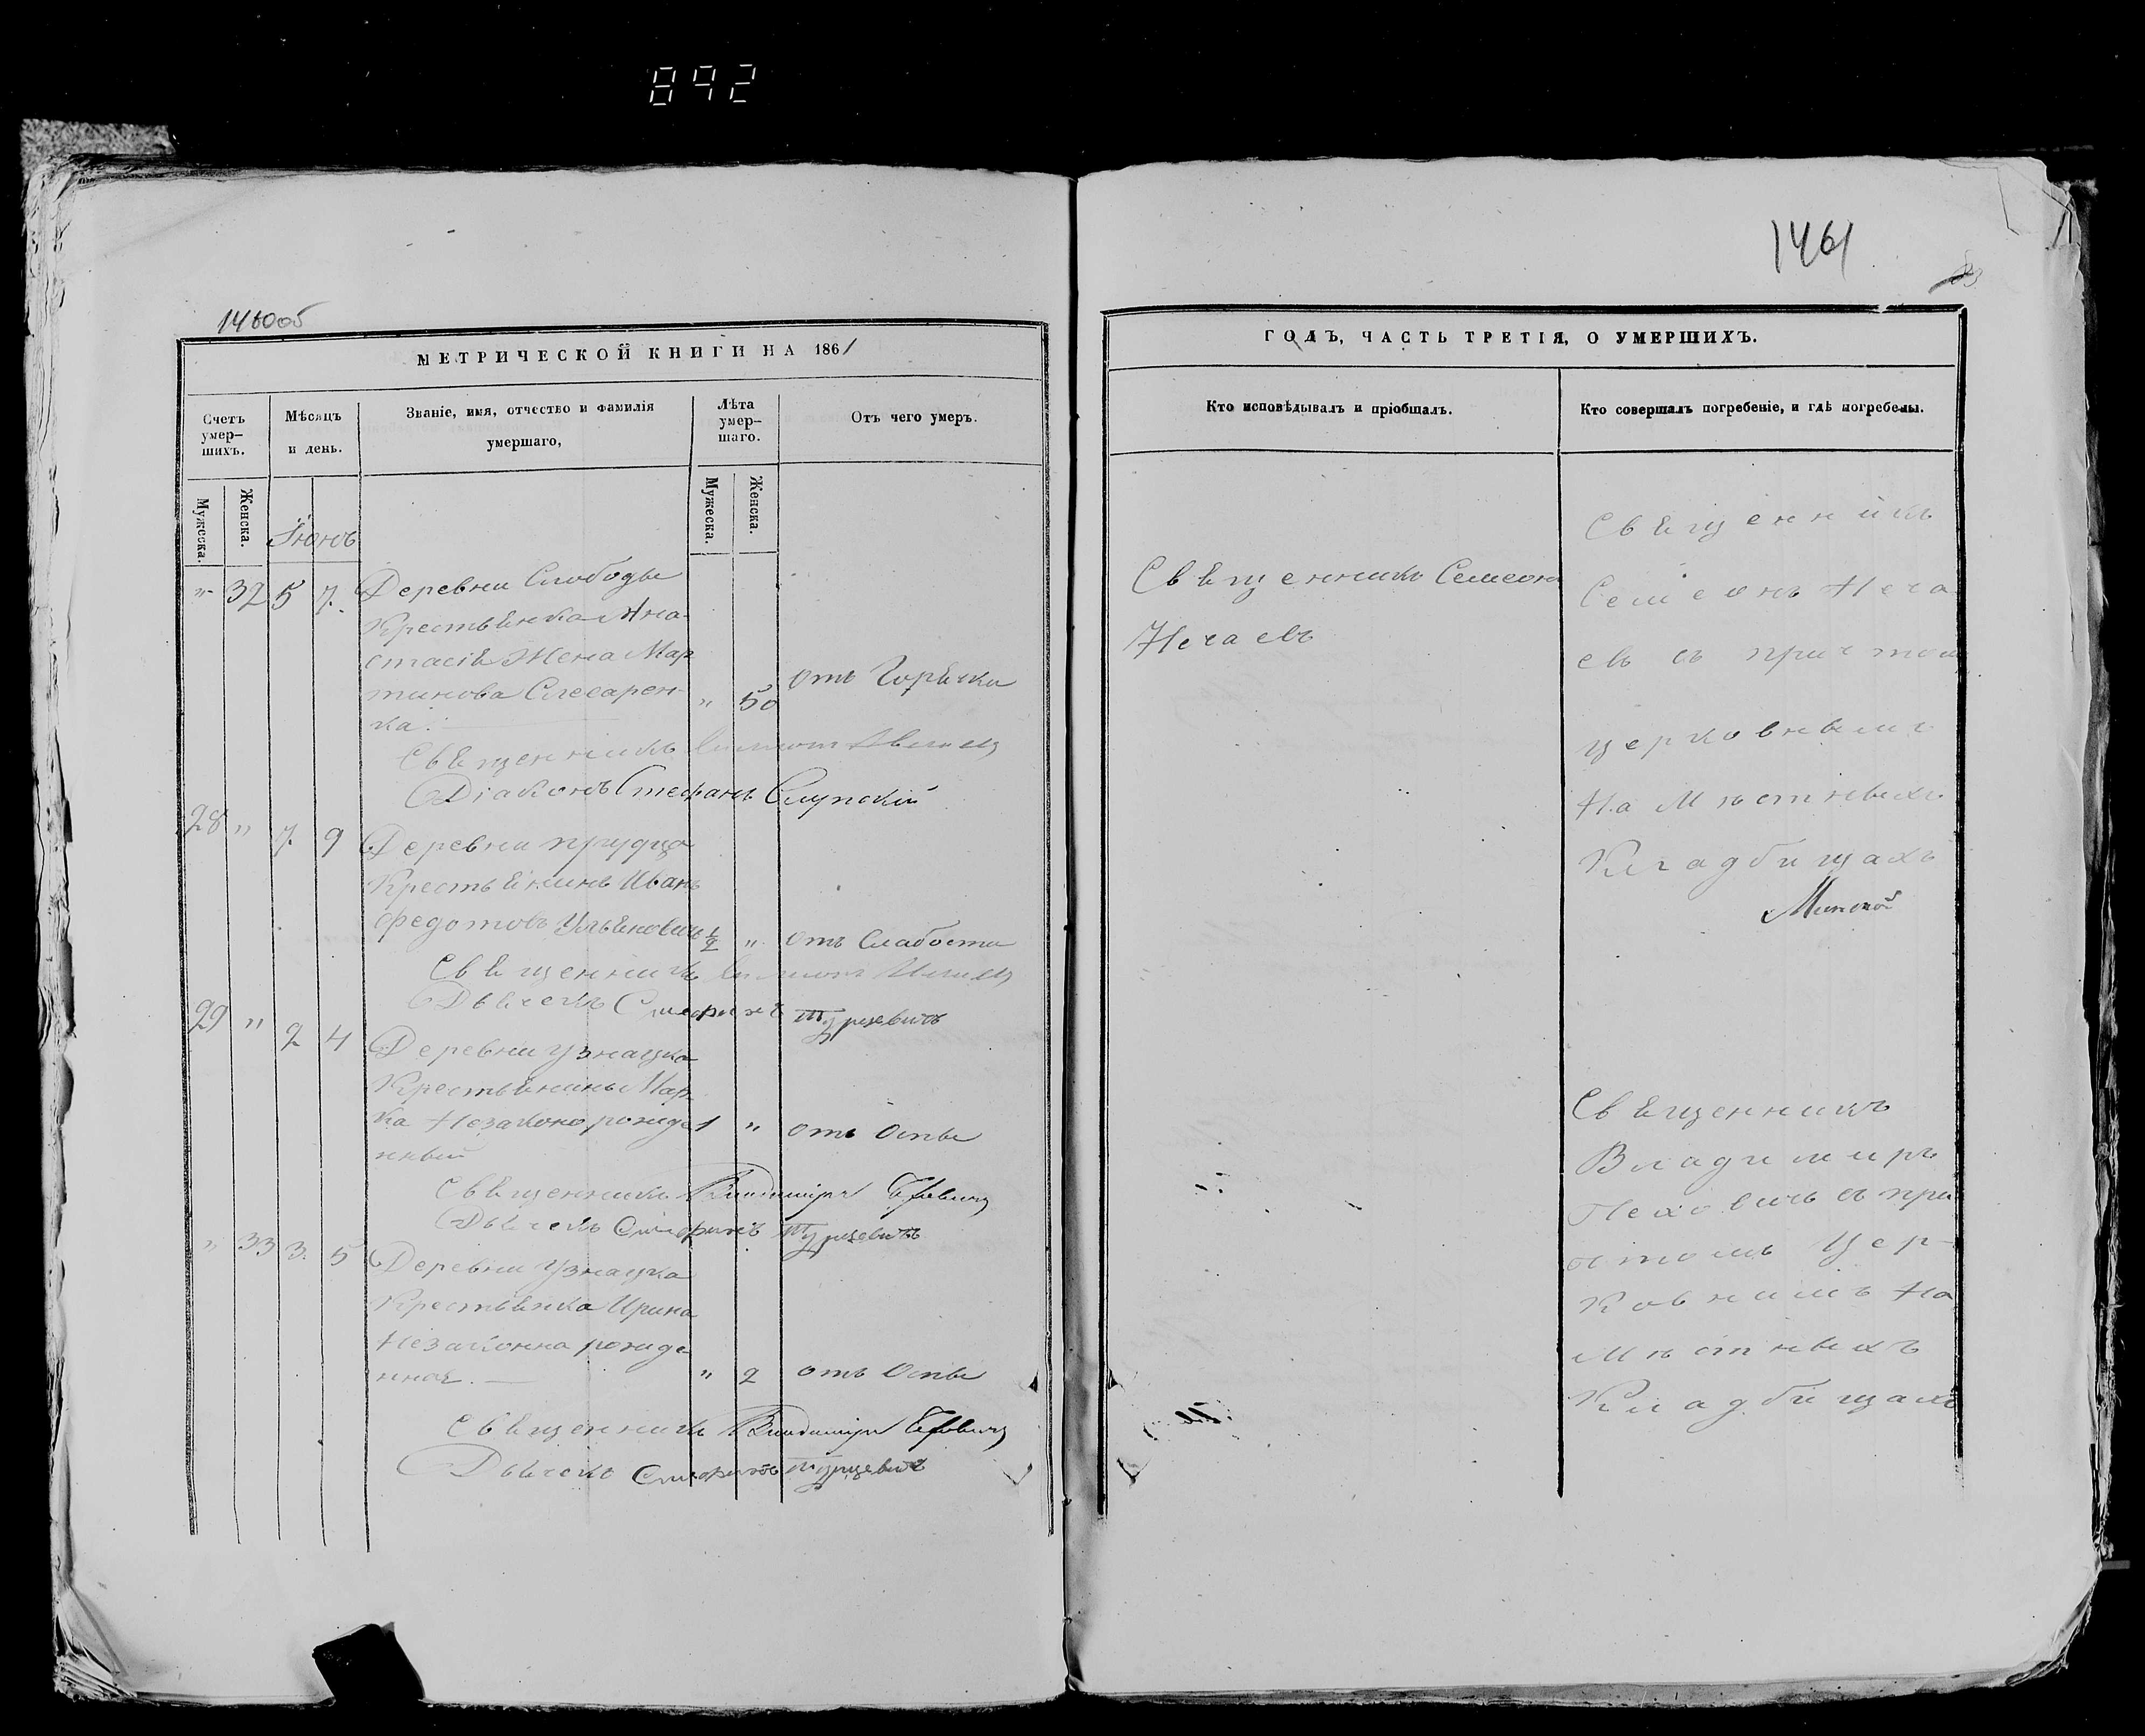 892
1461
1460об
МЕТРИЧЕСКОЙ КНИГИ НА 1861
Счетъ умер-
шихъ.
Мѣсяцъ
и день.
Званіе, имя, отчество и фамилія
умершаго,
Лѣта
умер-
шаго.
Отъ чего умеръ.
Мужеска.
Женска.
Мужеска.
Женска.
Іюнь
" 32 5 7. Деревни Слободы
Крестьянка Ана-
стасія Жена Мар
тинова Слесарен-
ка. " 50 отъ Горячки
Священникъ
Діаконъ Стефанъ Слупскій
28 " 7. 9 Деревни Прудца
Крестьянинъ Иванъ
Федотовъ Ульяновичъ 1/2 " отъ Слабости
Священникъ
Дьячекъ Турцевичъ
29 " 2 4 Деревни Узнацка
Крестьянинъ Мар
ка Незаконо рожде 1 " отъ Оспы
нный
Священникъ Владиміръ
Дьячекъ Турцевичъ
" 33 3. 5 Деревни Узнацка
Крестьянка Ирина
Незаконна рожде
нная. — " 2 отъ Оспы
Священникъ Владиміръ
Дьячекъ Турцевичъ
ГОДЪ, ЧАСТЬ ТРЕТІЯ, О УМЕРШИХЪ.
Кто исповѣдывалъ и пріобщалъ.
Кто совершалъ погребеніе, и гдѣ погребены.
Священникъ Семеонъ
Нечаевъ
Священникъ
Семеонъ Неча
евъ съ причтом
церковнымъ
На Мѣстныхъ
Кладбищахъ
Священникъ
Владимиръ
съ при
чтомъ Цер-
ковнимъ На
Мѣстныхъ
Кладбищахъ